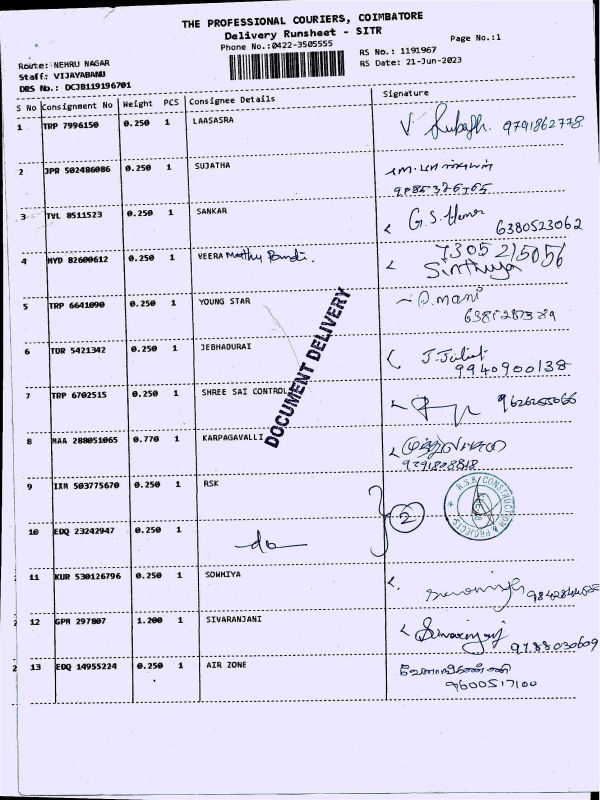 THE PROFESSIONAL COURIERS, COIMBATORE
Delivery Runsheet - SITR
Phone No.:0422-3505555
Page No.:1
Route: NEHRU NAGAR
RS No.: 1191967
Staff: VIJAYABANU
RS Date: 21-Jun-2023
DRS No.: DCJB119196701
S No Consignment No Weight PCS Consignee Details Signature
1 TRP 7996150 0.250 1 LAASASRA V 9791862778.
2 JPR 502486086 0.250 1 SUJATHA
3 TVL 8511523 0.250 1 SANKAR G.S. 6380523062
4 HYD 82600612 0.250 1 VEERA Muthu Pandi. 7305215056
Sinthuya
5 TRP 6641090 0.250 1 YOUNG STAR P. mani
6 TDR 5421342 0.250 1 JEBHADURAI J.
9940900138
7 TRP 6702515 0.250 1 SHREE SAI CONTROL
8 MAA 288051065 0.770 1 KARPAGAVALLI
9 IXM 503775670 0.250 1 RSK
R.S.K CONSTRUCTION & PROJECTS
2
10 EDQ 23242947 0.250 1 do
11 KUR 530126796 0.250 1 SOWMIYA
2 12 GPM 297807 1.200 1 SIVARANJANI Sivaranjani
9788030609
2 13 EDQ 14955224 0.250 1 AIR ZONE
9600517100
DOCUMENT DELIVERY